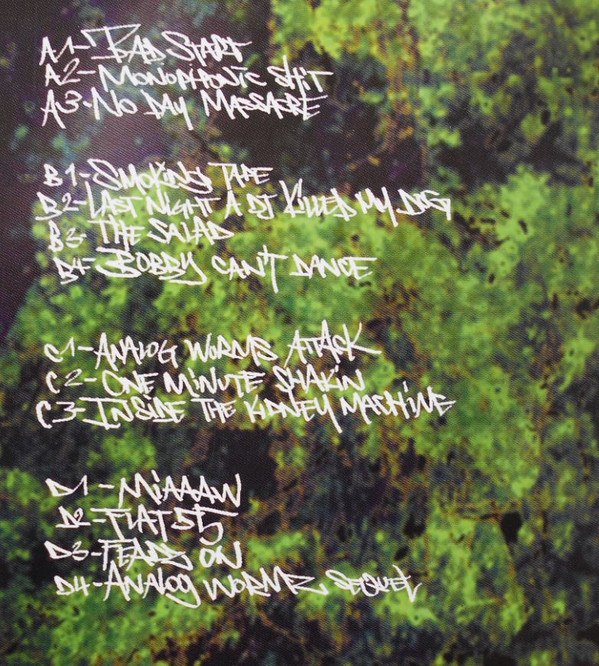 A1-BAD START
A2-MONOPHONIC SHIT
A3-NO DAY MASSACRE
B1-SMOKING TAPE
B2-LAST NIGHT A DJ KILLED MY DOG
B3-THE SALAD
B4-BOBBY CAN'T DANCE
C1-ANALOG WORMS ATTACK
C2-ONE MINUTE SHAKIN
C3-INSIDE THE KIDNEY MACHINE
D1-MIAAAW
D2-FLAT 55
D3-FEADZ ON
D4-ANALOG WORMZ SEQUEL